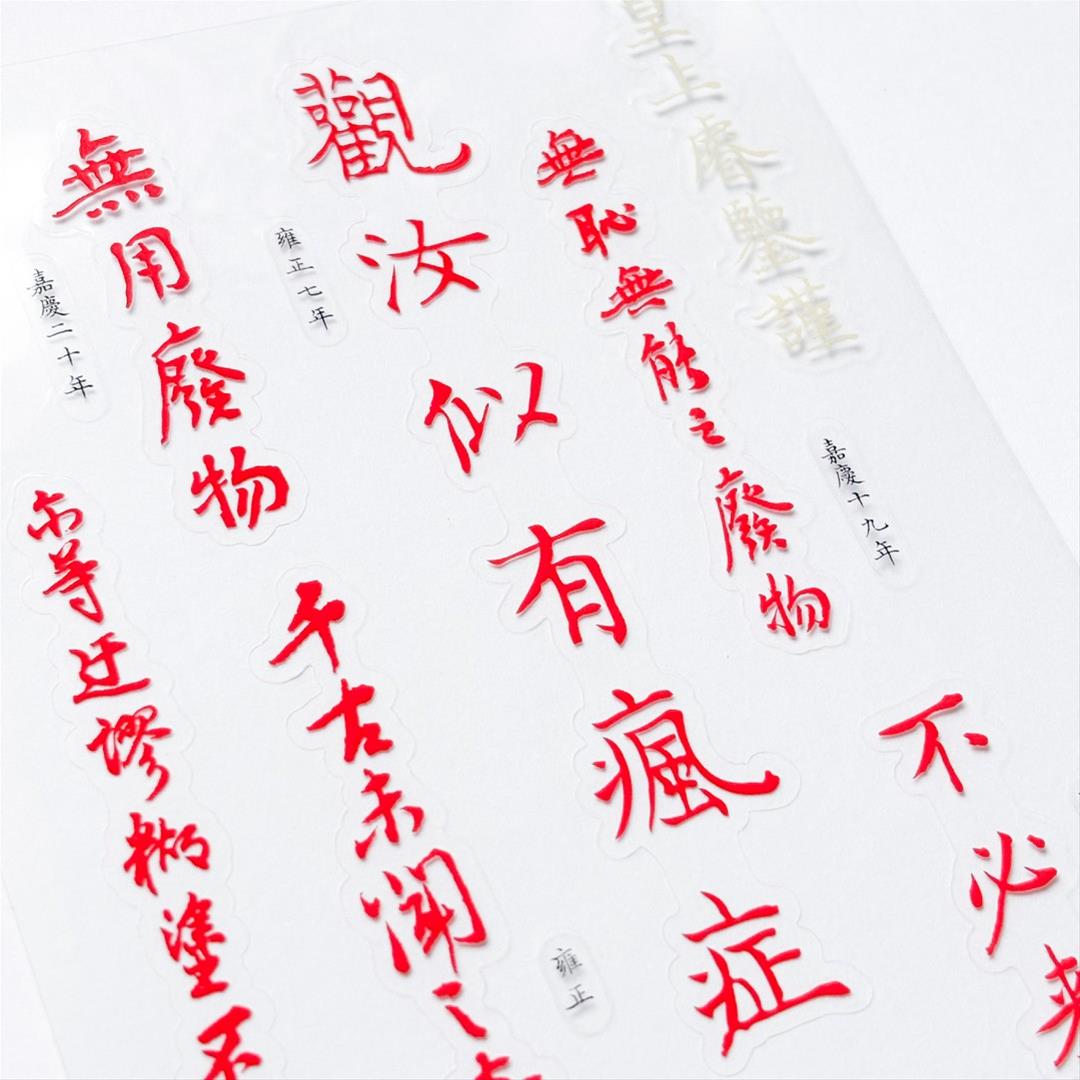 皇上睿鑒謹
不必
嘉慶十九年
無恥無能之廢物
觀汝似有瘋症
雍正
雍正七年
千古未聞之
無用廢物
嘉慶二十年
尔等迂謬糊塗不